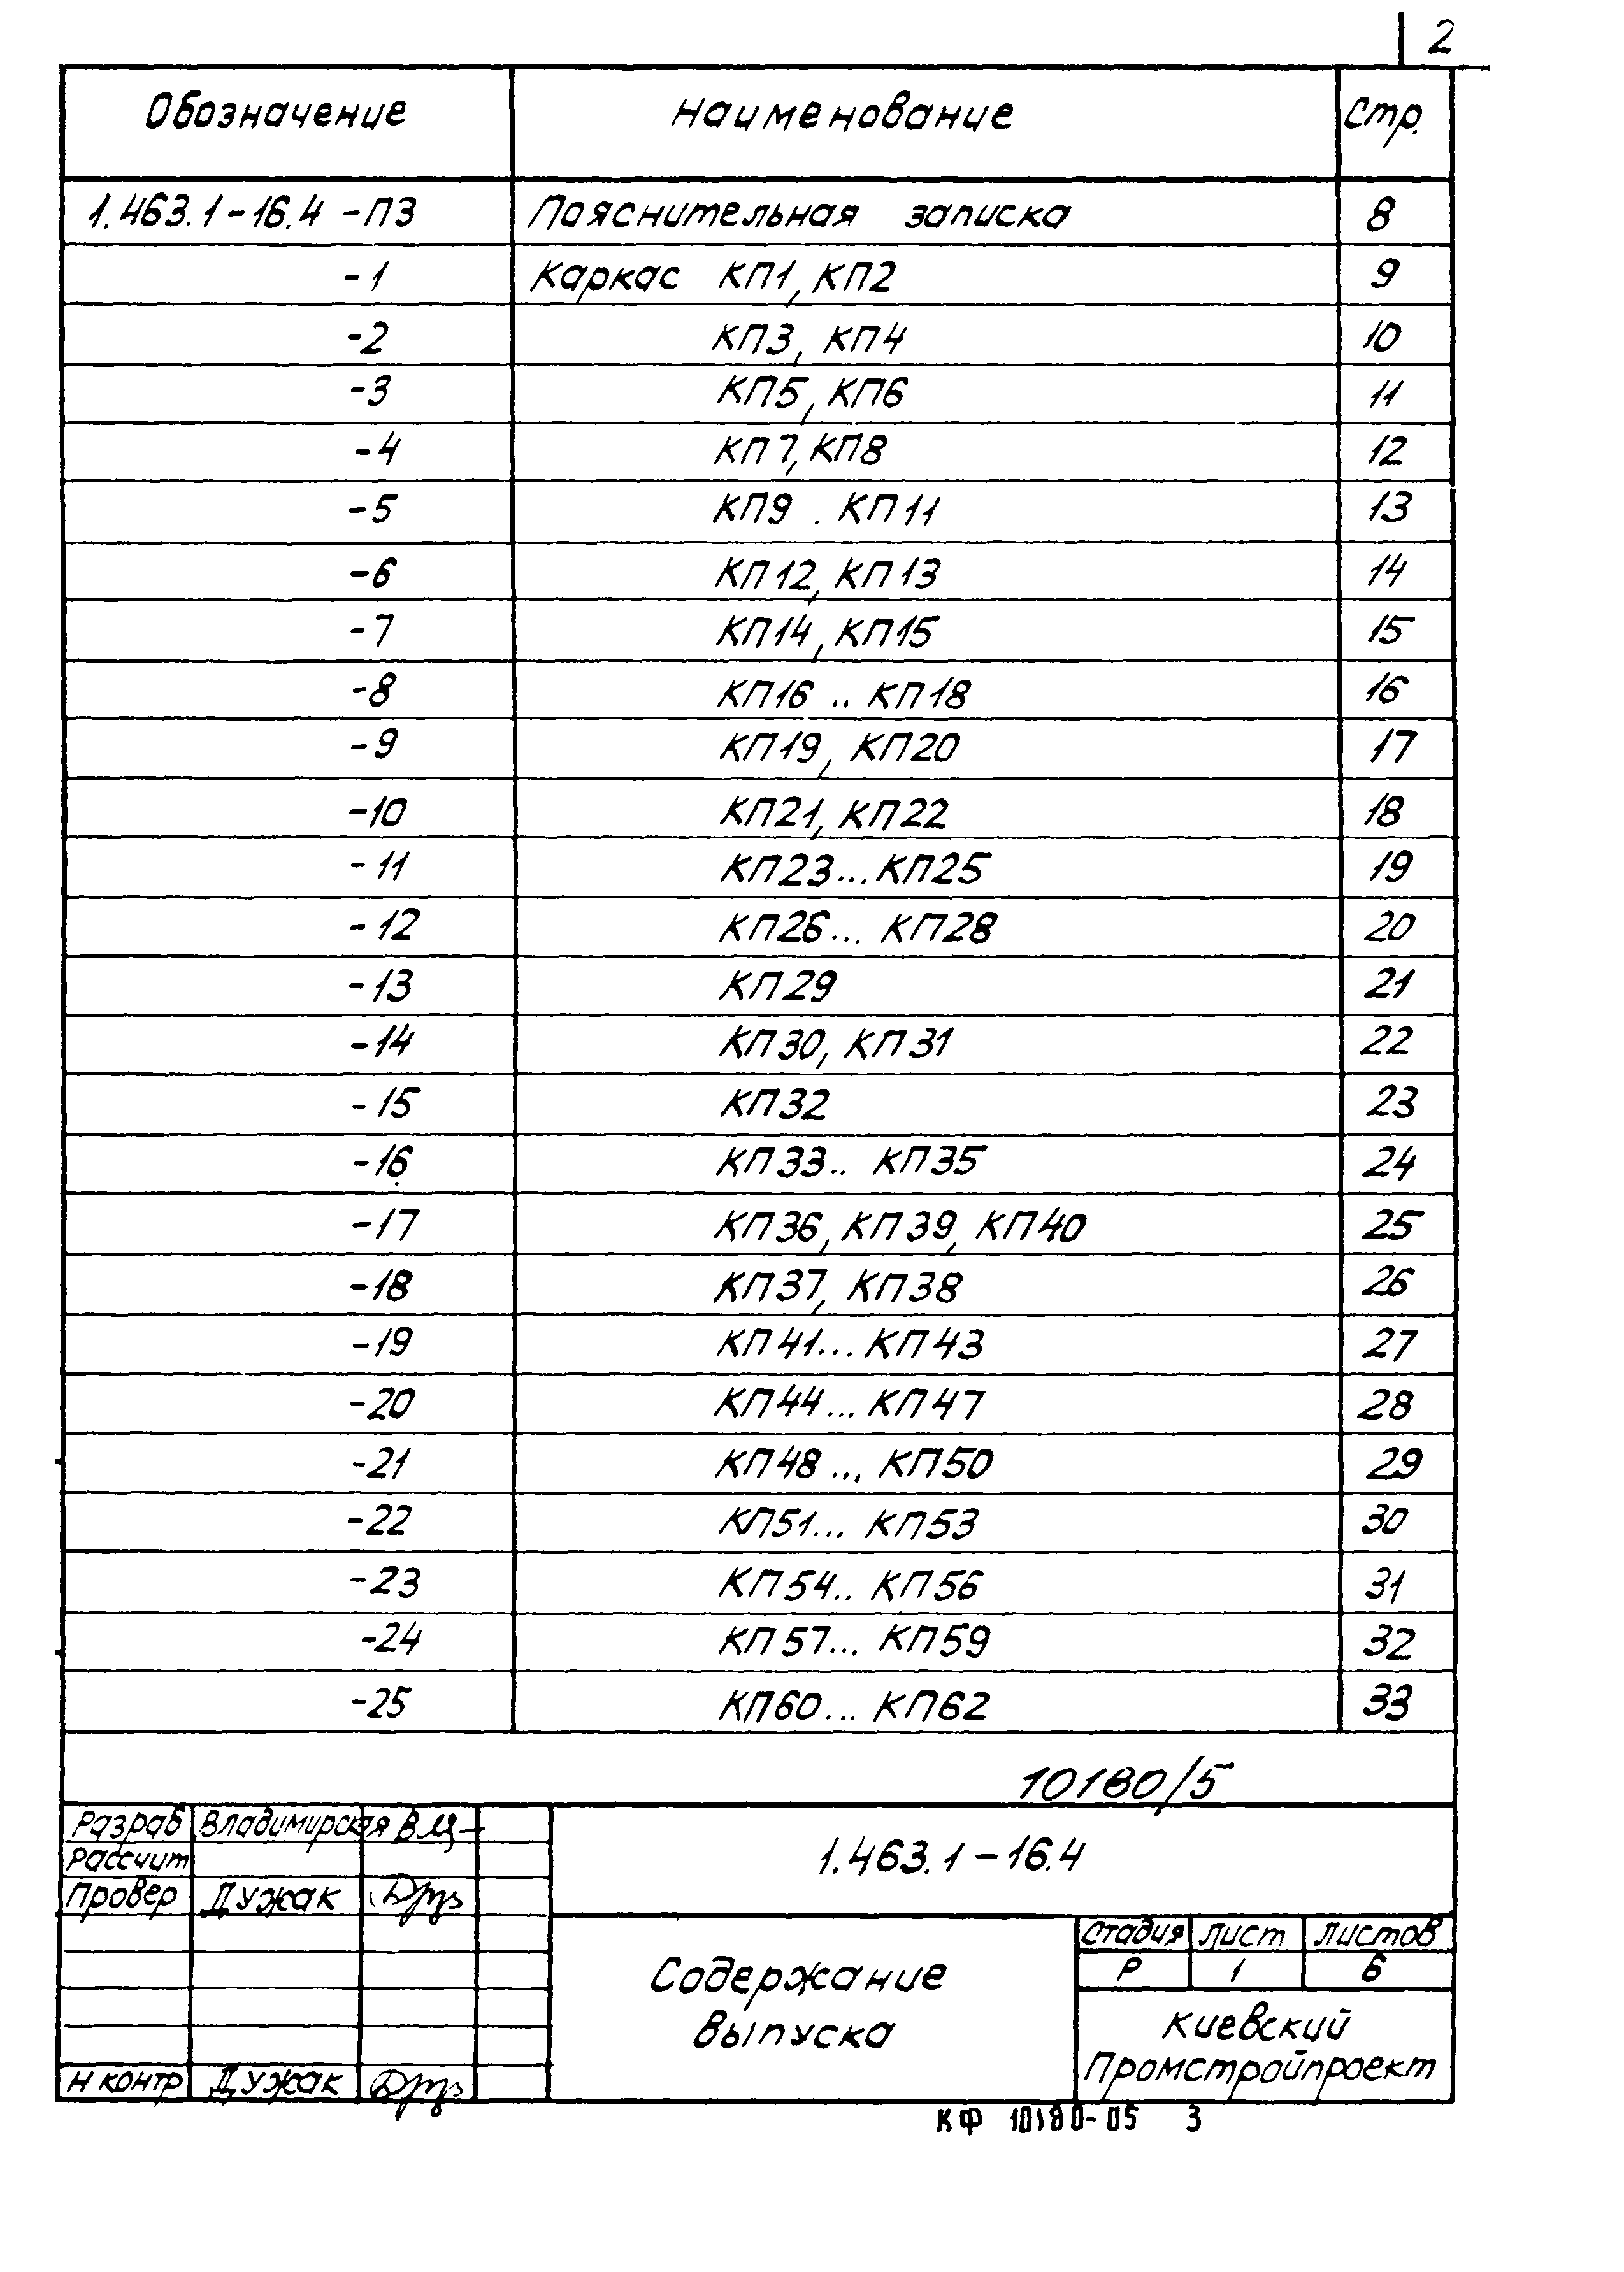 2
Обозначение Наименование Стр.
1.463.1-16.4 -ПЗ Пояснительная записка 8
-1 Каркас КП1, КП2 9
-2 КП3, КП4 10
-3 КП5, КП6 11
-4 КП7, КП8 12
-5 КП9 . КП11 13
-6 КП12, КП13 14
-7 КП14, КП15 15
-8 КП16 .. КП18 16
-9 КП19, КП20 17
-10 КП21, КП22 18
-11 КП23...КП25 19
-12 КП26... КП28 20
-13 КП29 21
-14 КП30, КП31 22
-15 КП32 23
-16 КП33.. КП35 24
-17 КП36, КП39, КП40 25
-18 КП37, КП38 26
-19 КП41...КП43 27
-20 КП44... КП47 28
-21 КП48... КП50 29
-22 КП51... КП53 30
-23 КП54.. КП56 31
-24 КП57... КП59 32
-25 КП60... КП62 33
10180/5
Разраб Владимирская
Рассчит
Провер Дужак
Н контр Дужак
1.463.1-16.4
Содержание
выпуска
Стадия Лист Листов
Р 1 6
Киевский
Промстройпроект
КФ 10180-05 3